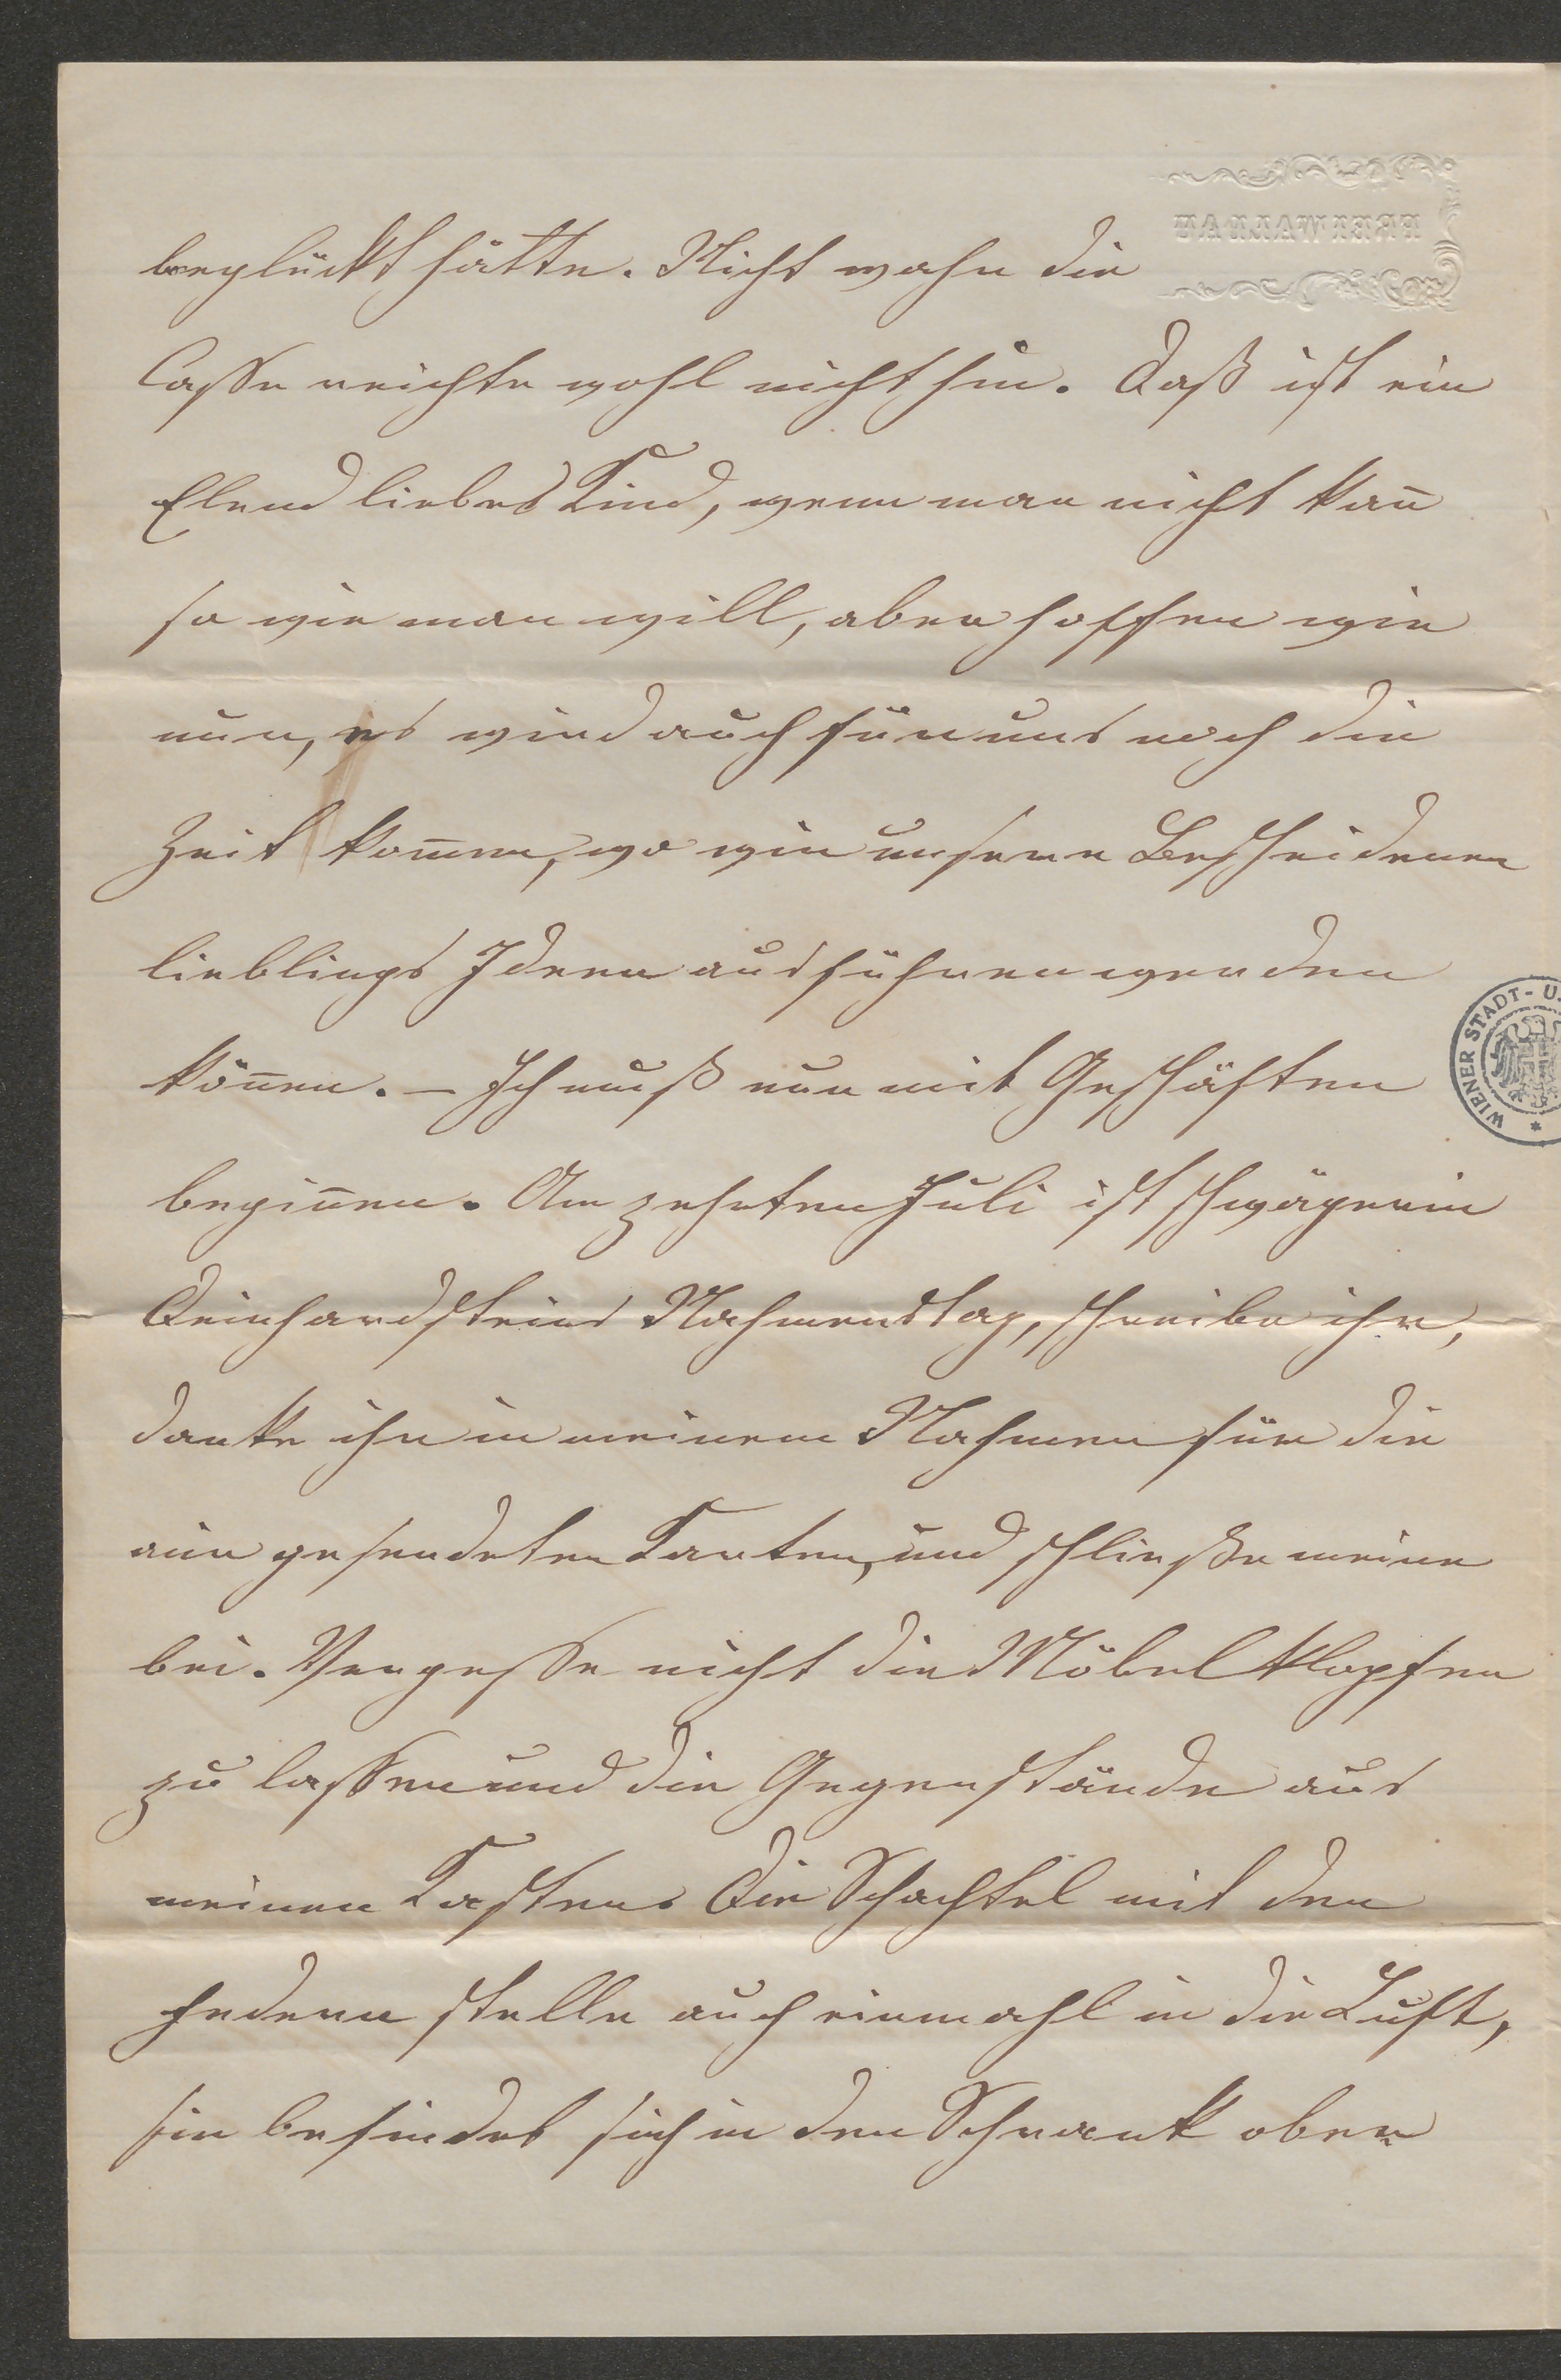 beglückt hätte. Nicht wahr die
Casse reichte wohl nicht hin. Daß ist ein
Elend liebes Kind, wenn man nicht kan̄
so wie man will, aber hoffen wir
nur, es wird auch für uns noch die
Zeit kom̄en, wo wir unsere Bescheidenen
lieblings Ideen ausführen werden
kön̄en. – Ich muß nun mit Geschäften
begin̄en. Am zehnten Juli ist schwägerin
Deinhardsteins Nahmenstag, schreibe ihr,
danke ihr in meinem Nahmen für die
mir gesendeten Karten, und schließe meine
bei. Vergesse nicht die Möbel klopfen
zu lassen und die Gegenstände aus
meinen Kasten. Die Schachtel mit den
Federn stelle auch einmahl in die Luft,
sie befindet sich in den Schrank oben
FREIWALDAU
WIENER STADT- U.